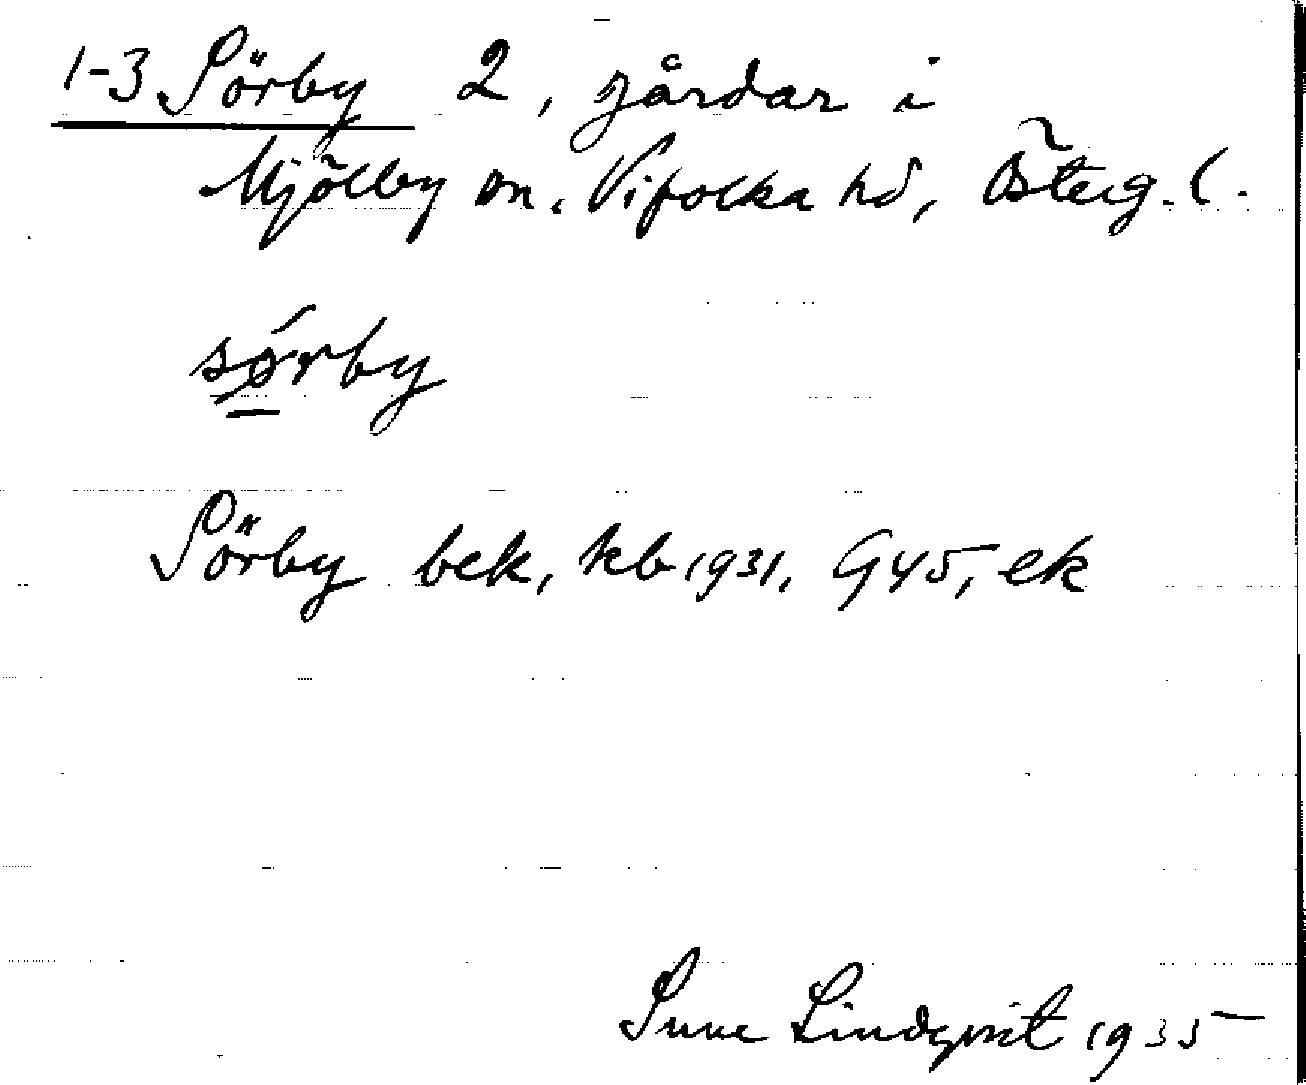 1-3 Sörby 2, gårdar i
Mjölby sn. Vifolka hd, Österg. l.
sǿrby
Sörby bek, kb 1931, G45, ek
Sune Lindqvist 1935